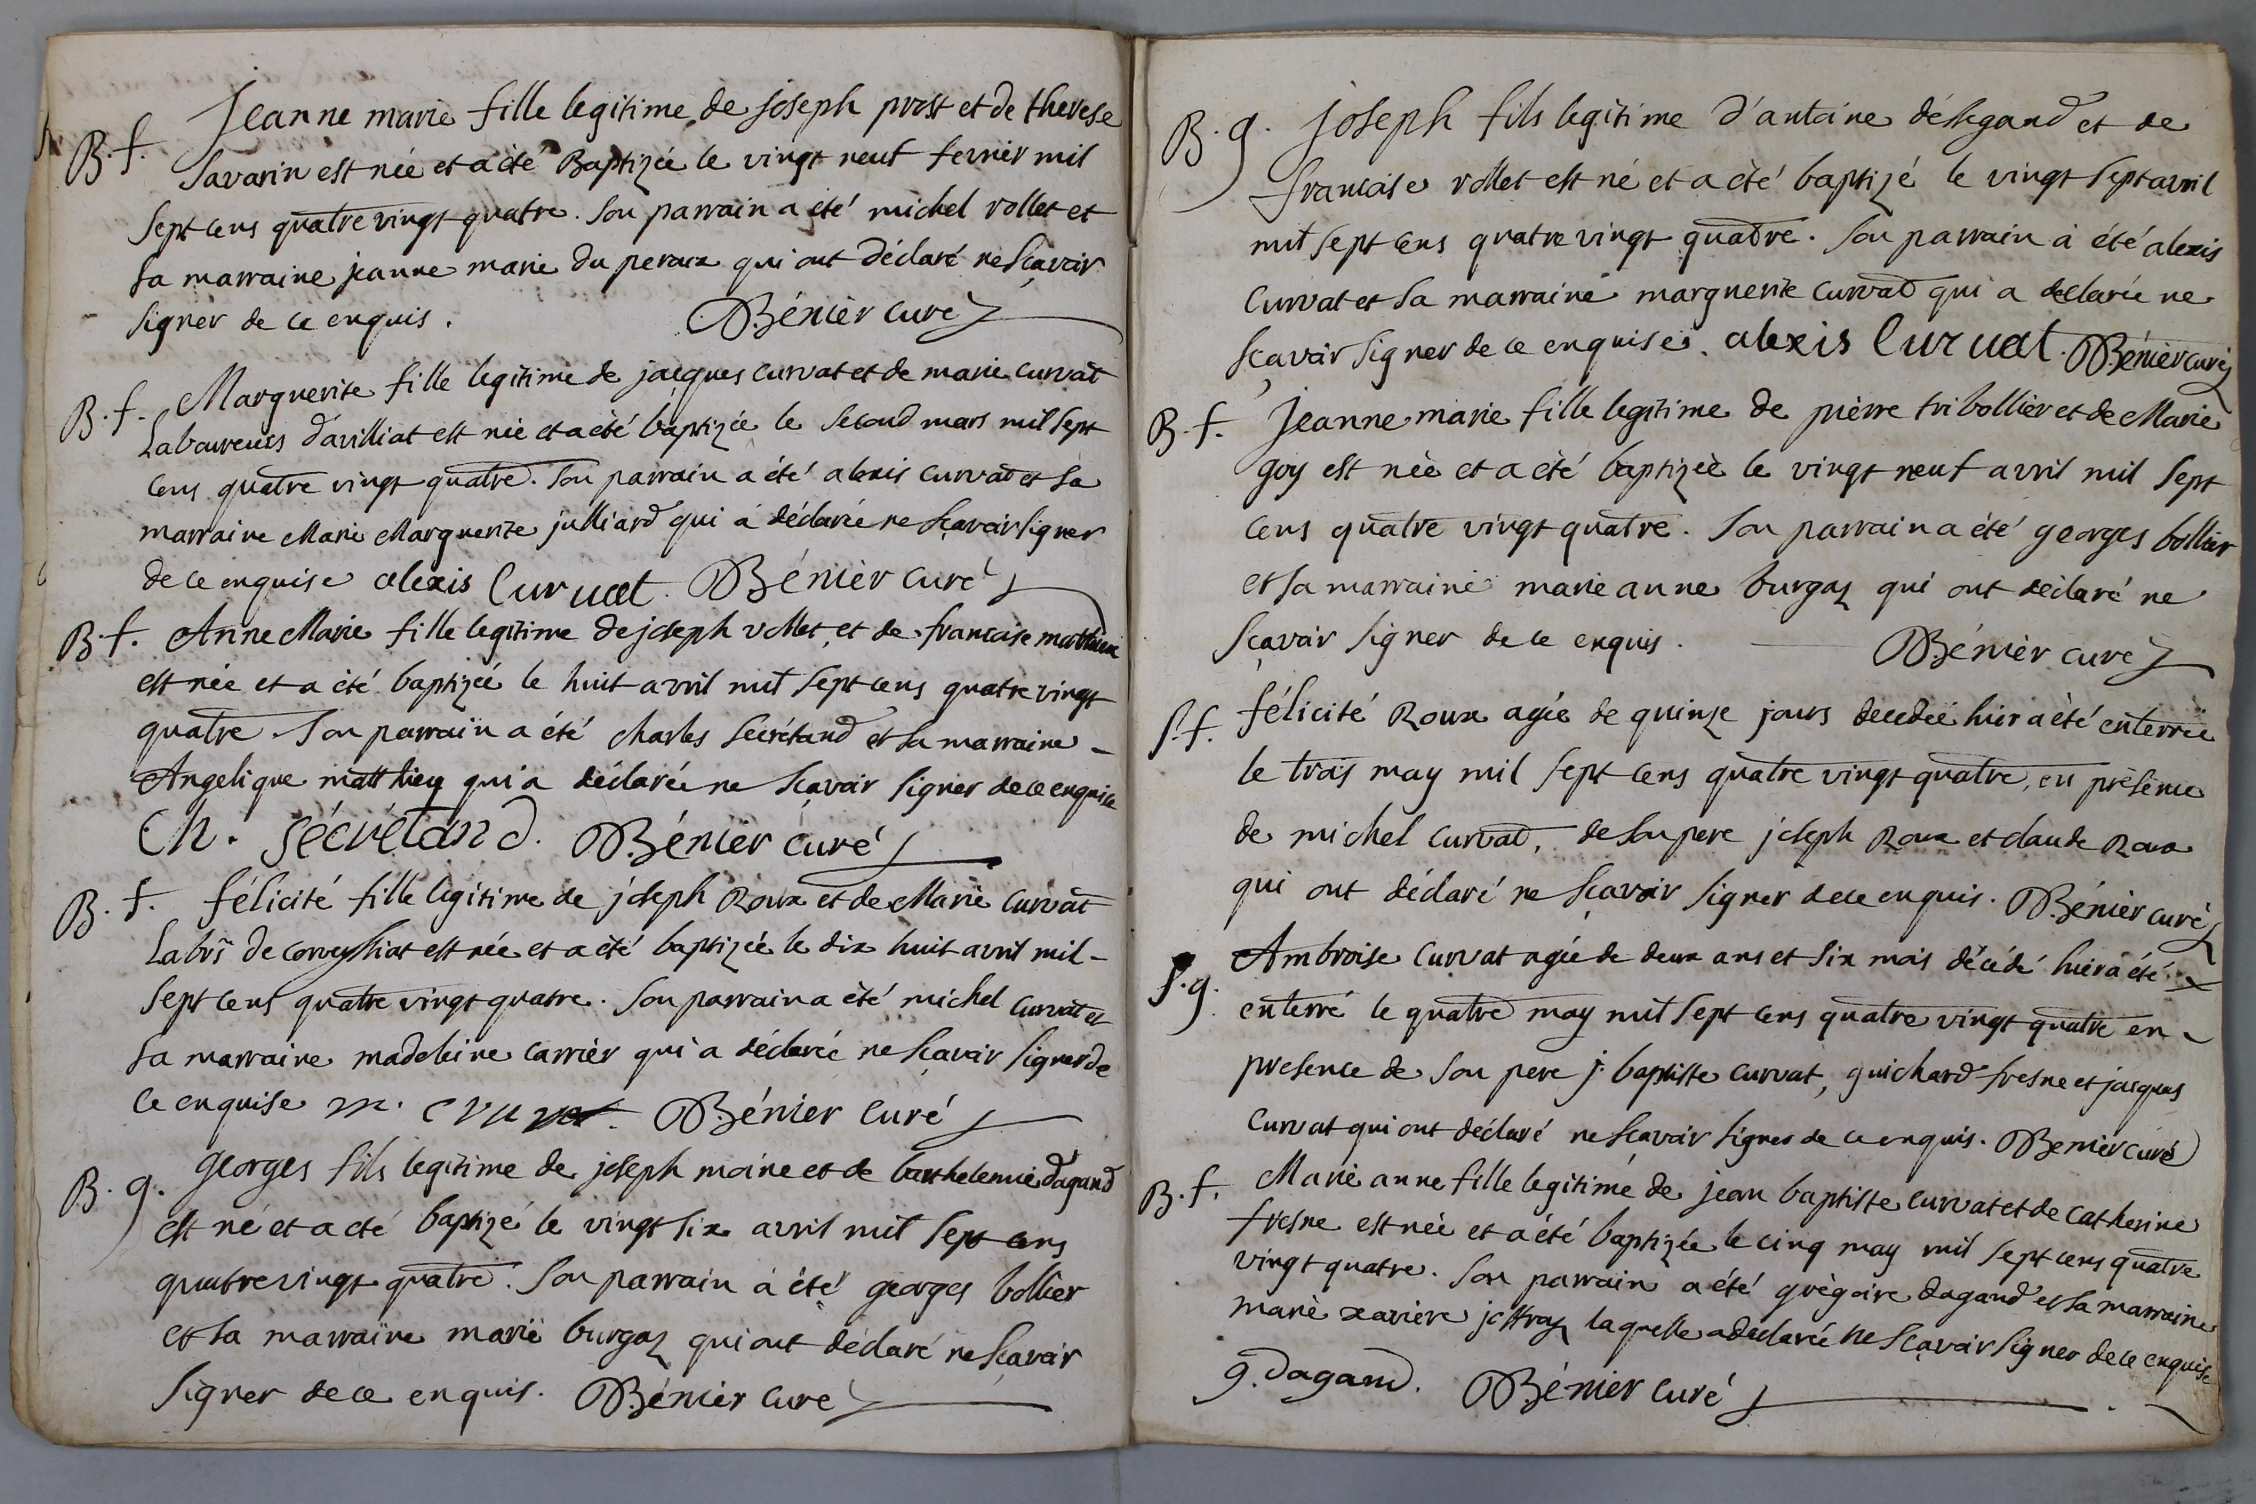 Jeanne marie fille legitime de joseph prost et de therese
B. f. Savarin est née et a été Baptizée le vingt neuf fevrier mil
sept cens quatre vingt quatre. Son parrain a été michel vollet et
sa marraine jeanne marie du peraux qui ont déclaré ne sçavoir
signer de ce enquis. Bénier curé
Marguerite fille legitime de jacques curvat et de marie curvat
B. f. Laboureurs d'avilliat est née et a été baptizée le second mars mil sept
cens quatre vingt quatre. Son parrain a été alexis curvat et sa
marraine Marie Marguerite julliard qui a déclarée ne sçavoir signer
de ce enquise alexis Curuat. Bénier curé
B. f. Anne Marie fille legitime de joseph vollet et de francoise matthieux
est née et a été baptizée le huit avril mil sept cens quatre vingt
quatre Son parrain a été charles secrétand et sa marraine -
Angelique matthieu qui a déclarée ne sçavoir signer de ce enquise
Ch. sécrétand. Bénier curé
B. f. félicité fille legitime de joseph Roux et de Marie Curvat
Labrs de corveyssiat est née et a été baptizée le dix huit avril mil -
sept cens quatre vingt quatre. Son parrain a été michel curvat et
sa marraine madeleine carrier qui a déclarée ne sçavoir signer de
ce enquise m. Bénier curé
georges fils legitime de joseph moine et de barthelemie dagand
B. g. est né et a été baptizé le vingt six avril mil sept cens
quatre vingt quatre. Son parrain a été georges bollier
et sa marraine marie burgaz qui ont déclaré ne sçavoir
signer de ce enquis. Bénier curé
B. g. joseph fils legitime d'antoine désegand et de
francaise vollet est né et a été baptizé le vingt sept avril
mil sept cens quatre vingt quatre. Son parrain a été alexis
Curvat et sa marraine marguerite curvat qui a declarée ne
sçavoir signer de ce enquise. alexis Curuat. Bénier curé
B. f. Jeanne marie fille legitime de pierre tribollier et de Marie
goy est née et a été baptizée le vingt neuf avril mil sept
cens quatre vingt quatre. Son parrain a été georges bollier
et sa marraine marie anne burgaz qui ont déclaré ne
sçavoir signer de ce enquis. Bénier curé
S. f. félicité Roux agée de quinze jours decedée hier a été enterrée
le trois may mil sept cens quatre vingt quatre, en présence
de michel curvat, de son pere joseph Roux et claude Roux
qui ont déclaré ne sçavoir signer de ce enquis. Bénier curé
Ambroise Curvat agée de deux ans et six mois décédé hier a été
S. g. enterré le quatre may mil sept cens quatre vingt quatre en -
presence de son pere j. baptiste curvat, guichard fresne et jacques
Curvat qui ont déclaré ne sçavoir signer de ce enquis. Benier curé
B. f. Marie anne fille legitime de jean baptiste curvat et de catherine
fresne est née et a été baptizée le cinq may mil sept cens quatre
vingt quatre. Son parrain a été grégoire dagand et sa marraine
marie xaviere joffray laquelle a déclarée ne sçavoir signer de ce enquise
g. dagand. Bénier curé